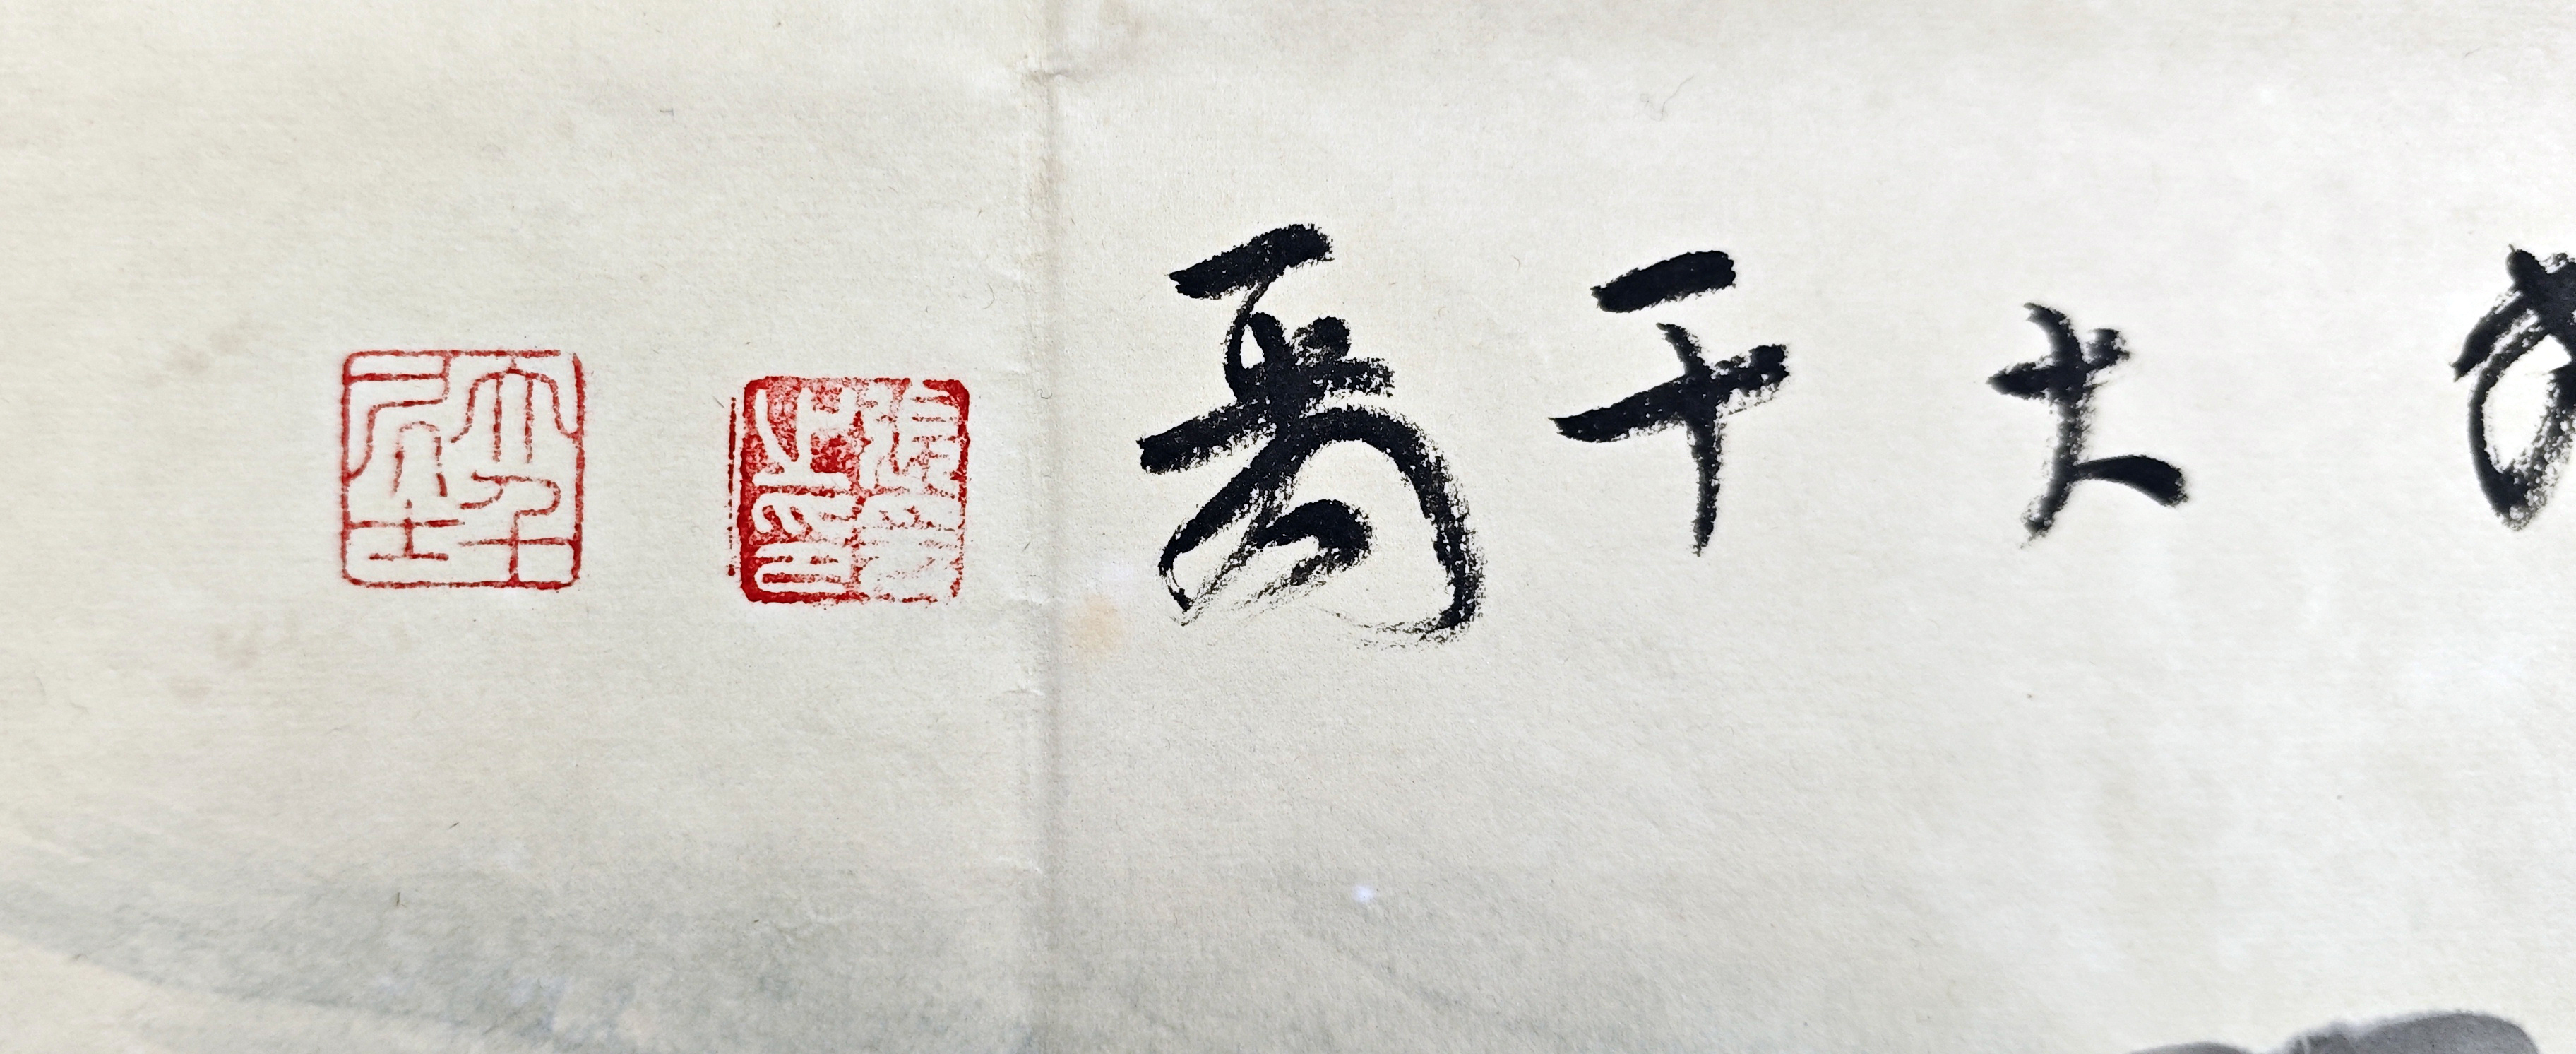 大千爰
張爰之印
大千居士